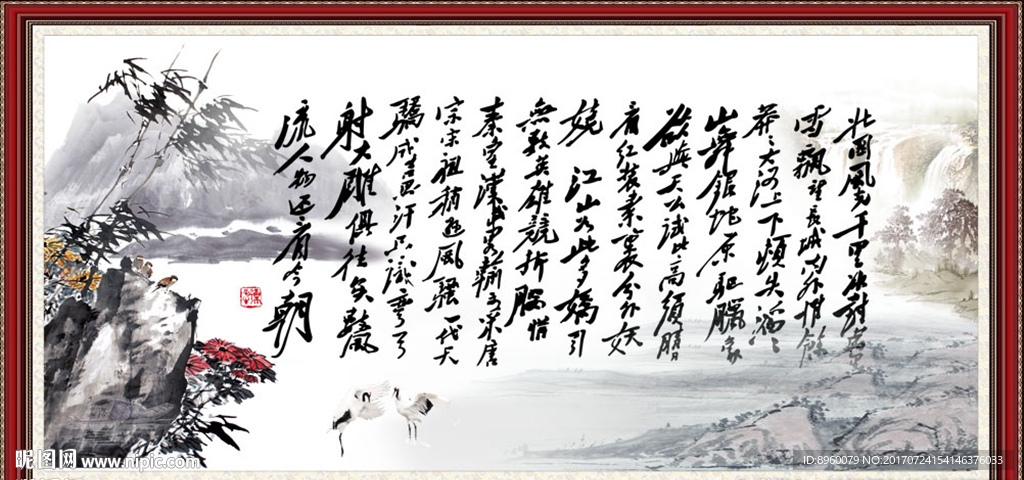 北国風光千里冰封萬
雪飄望長城内外惟餘
莽々大河上下頓失滔々
山舞銀蛇原馳臘象
欲與天公試比高須晴
看红装素裹分外妖
嬈 江山如此多嬌引
無数英雄競折腰惜
秦皇漢武略輸文采唐
宗宋祖稍遜風騷一代天
驕成吉思汗只識彎弓
射大雕俱往矣數風
流人物还看今朝
昵图网 www.nipic.com
ID:8960079 NO:20170724154146376033